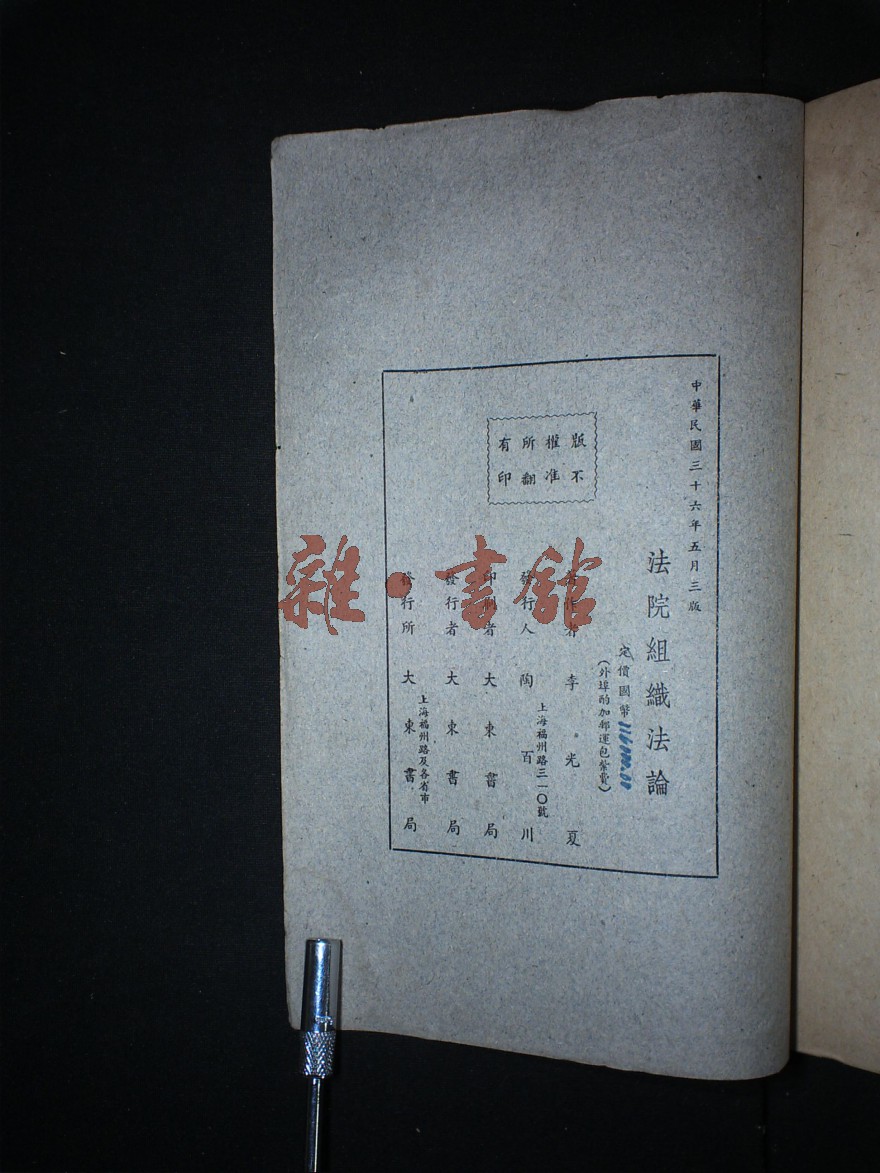 中華民國三十六年五月三版
法院組織法論
定價國幣
(外埠酌加郵運包紮費)
版權所有
不准翻印
著作者 李光夏
上海福州路三一〇號
發行人 陶百川
印刷者 大東書局
發行者 大東書局
上海福州路及各省市
發行所 大東書局
雜·書館